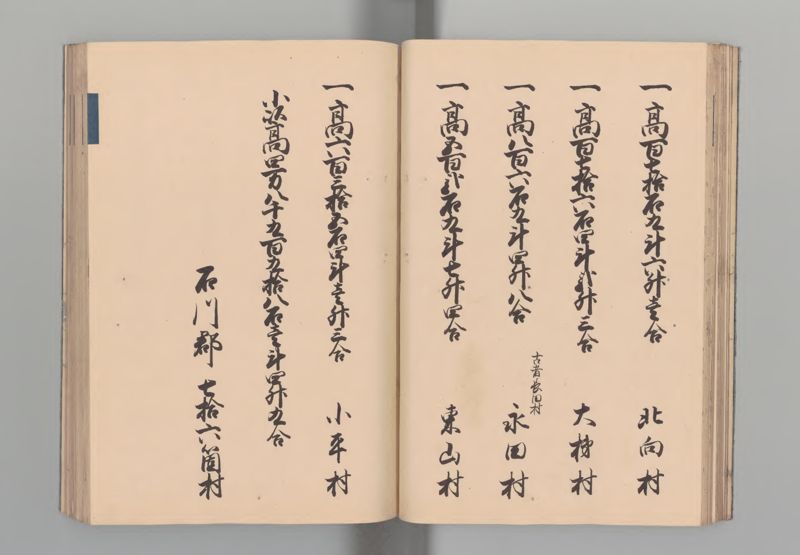 一高百七拾石九斗六升壱合 北向村
一高百七拾六石四斗弐升三合 大村
一高八百六石九斗四升八合 永田村
古者長田村
一高五百弐石九斗七升四合 東山村
一高六百三拾五石四斗壱升三合 小平村
小以高四万八千九百九拾八石壱斗四升九合
石川郡 七拾六箇村